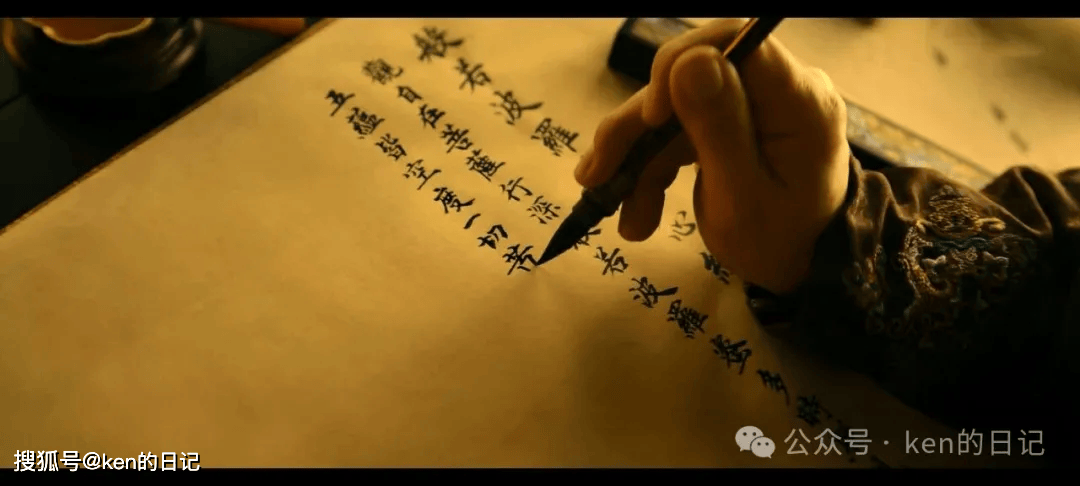 般若波羅 心
觀自在菩薩行深 若波羅蜜多時
五蘊皆空度一切苦
公众号 · ken的日记
搜狐号@ken的日记